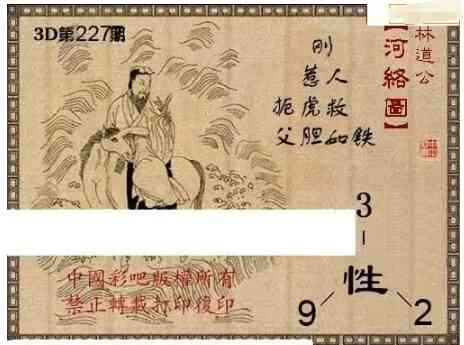 3D第227期
刚
惹人
扼虎救
父胆如铁
林道公
【河络圖】
3
性
9
2
中國彩吧版權所有
禁止轉载打印復印